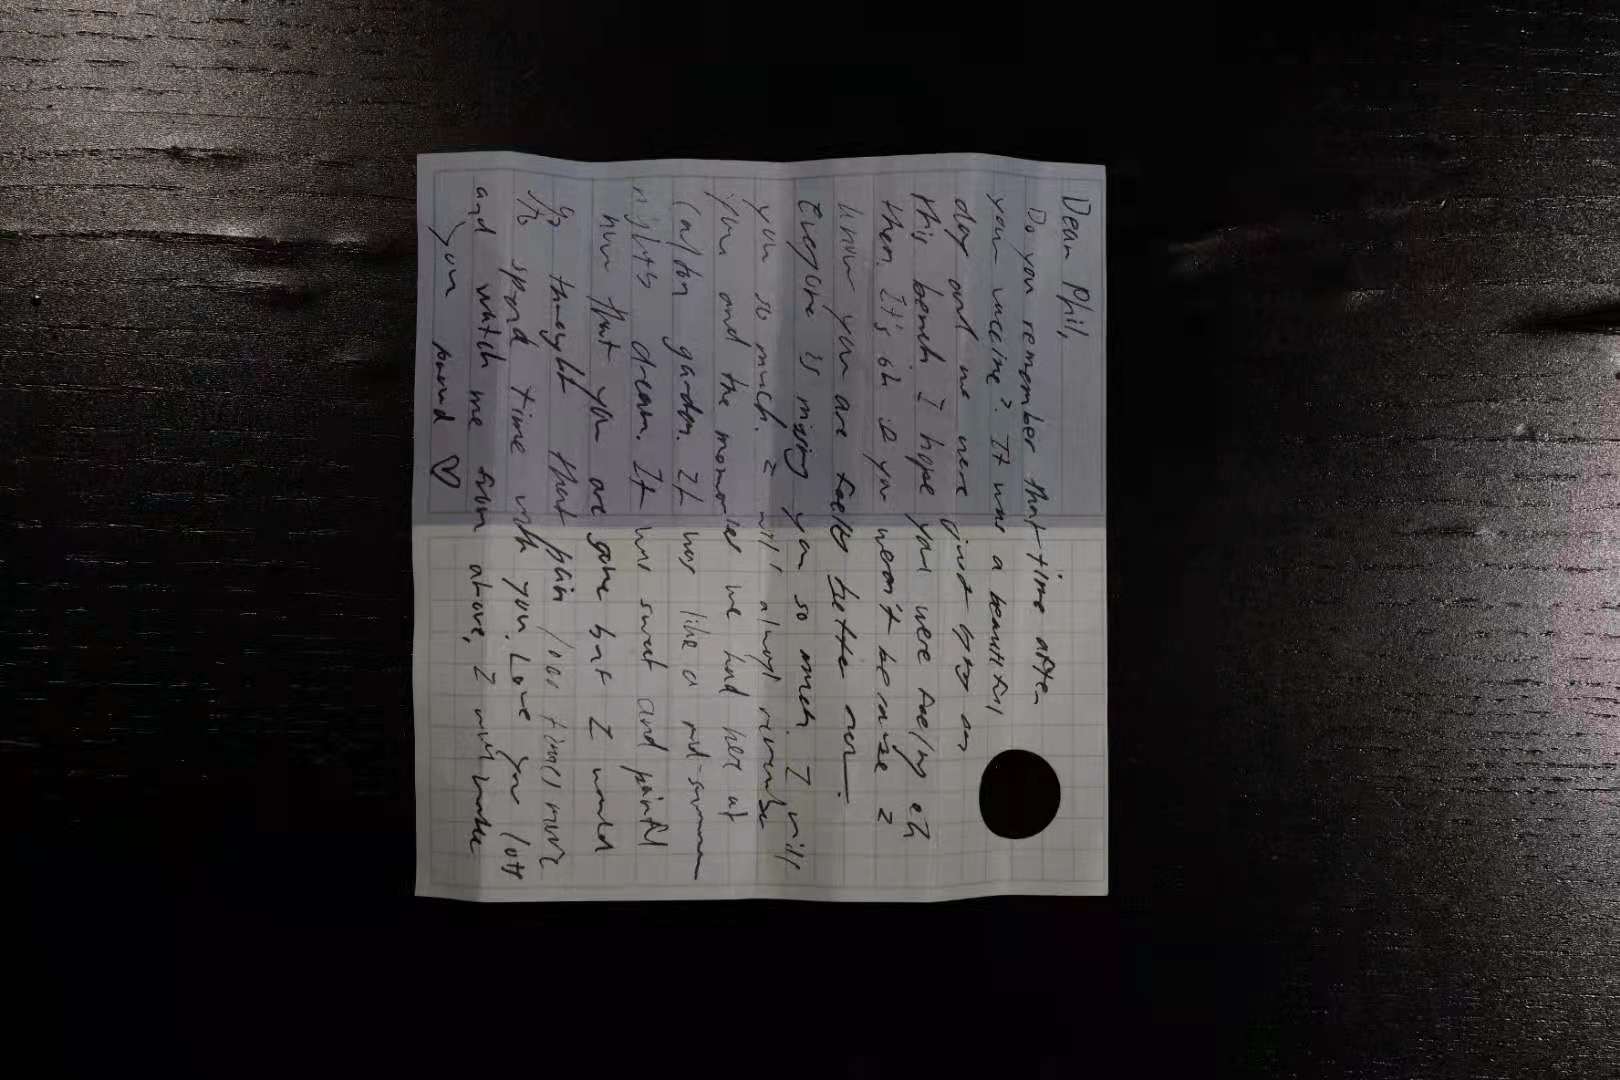 Dear Phil,
Do you remember that time after
your vaccine? It was a beautiful
day and we were just on
this bench. I hope you were feeling ok
then. It's ok if you weren't because I
know you are feeling better now.
Everyone is missing you so much. I will
you so much. I will always remember
you and the memories we had here at
Carlton garden. It was like a mid-summer
nights dream. It was sweet and painful
now that you are gone but I would
go through that pain 1001 times more
to spend time with you. Love you lots
and watch me from above, I will make
you proud ♡